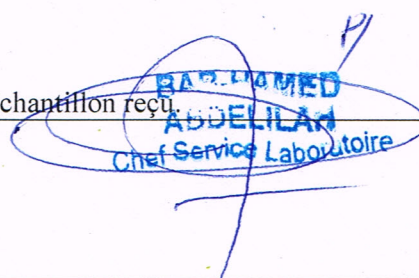 P/
chantillon reçu.
ABDELILAH
Chef Service Laboratoire